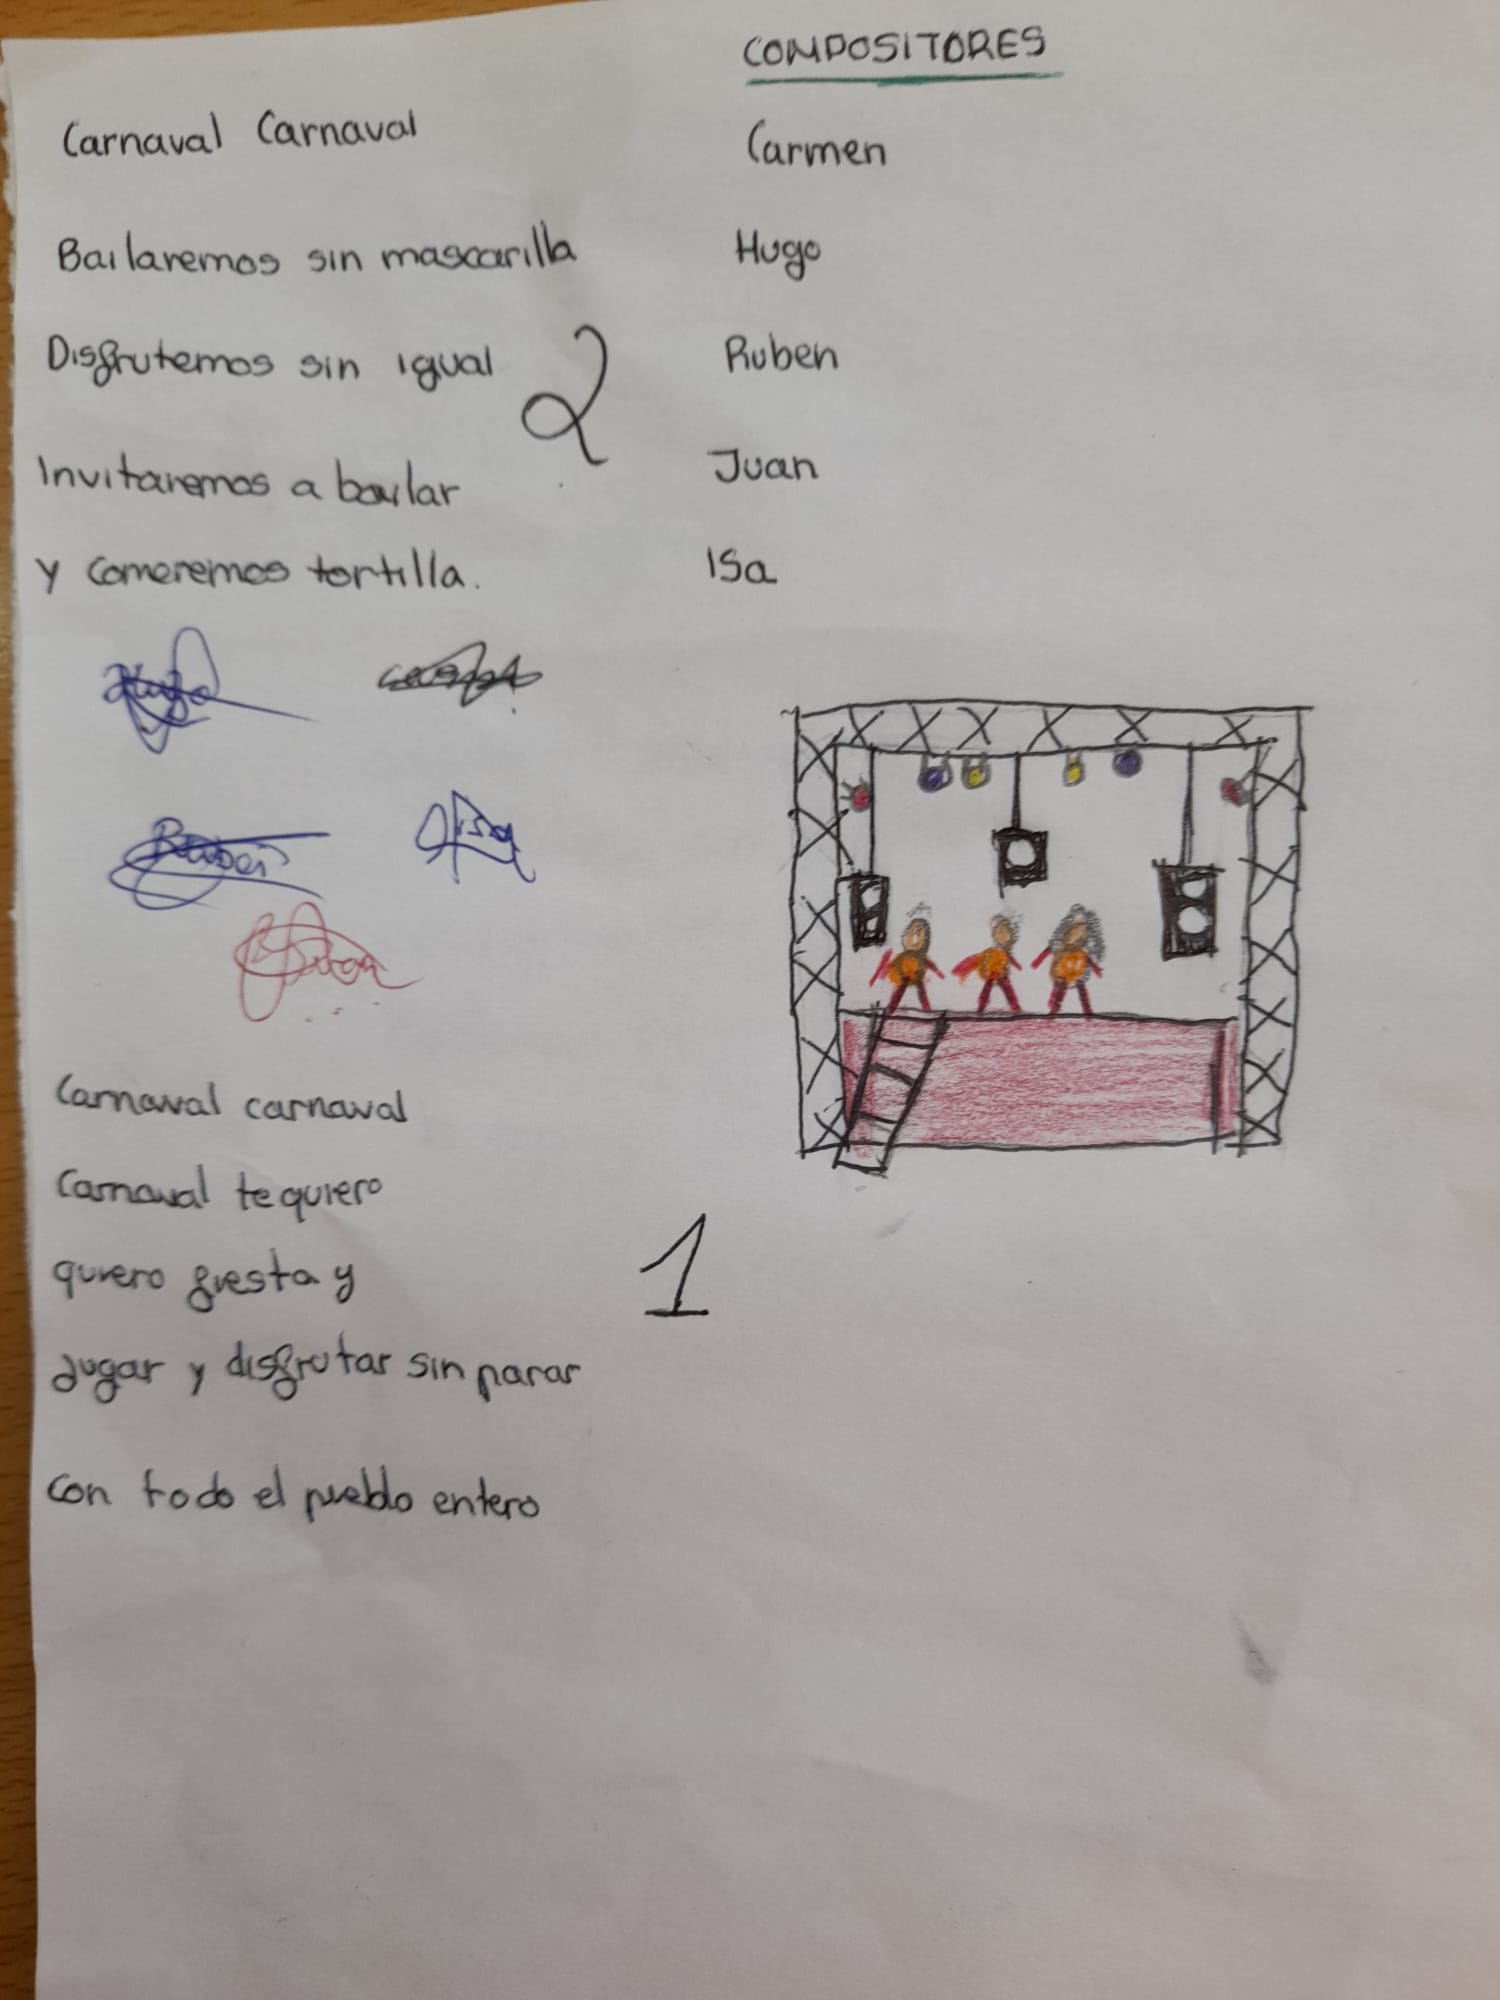 COMPOSITORES
Carnaval Carnaval
Bailaremos sin mascarilla
Disfrutemos sin igual
2
Invitaremos a bailar
y comeremos tortilla.
Carmen
Hugo
Ruben
Juan
Isa
Hugo
Ruben
Isa
Juan
Carnaval carnaval
Carnaval te quiero
quiero fiesta y
1
Jugar y disfrutar sin parar
con todo el pueblo entero